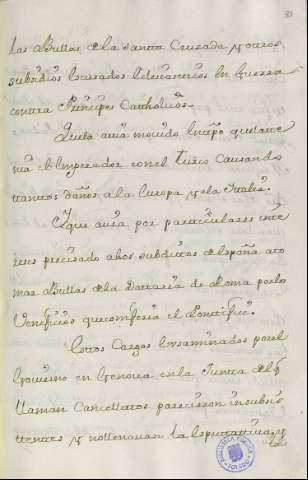 las Bullas de la Santta Cruzada y otros
subsidios
contra Principes Catholicos.
Que la avia movido tiempo que la
nia el Emperador con el Turco causando
tanttos daños a la Europa y a la Italia.
Y que avia por particulares inte
reses precisado a los subditos de España a to
mar Bullas de la Dattaria de Roma por los
Veneficios que conferia el Ponttifice.
Estos Cargos examinados por el
Govierno en Genova en la Juntta de los q
llaman Cancellatos parecieron insubsis
tenttes y no llenavan la espectattiva y
BIBLIOTECA PUBLICA
TOLEDO